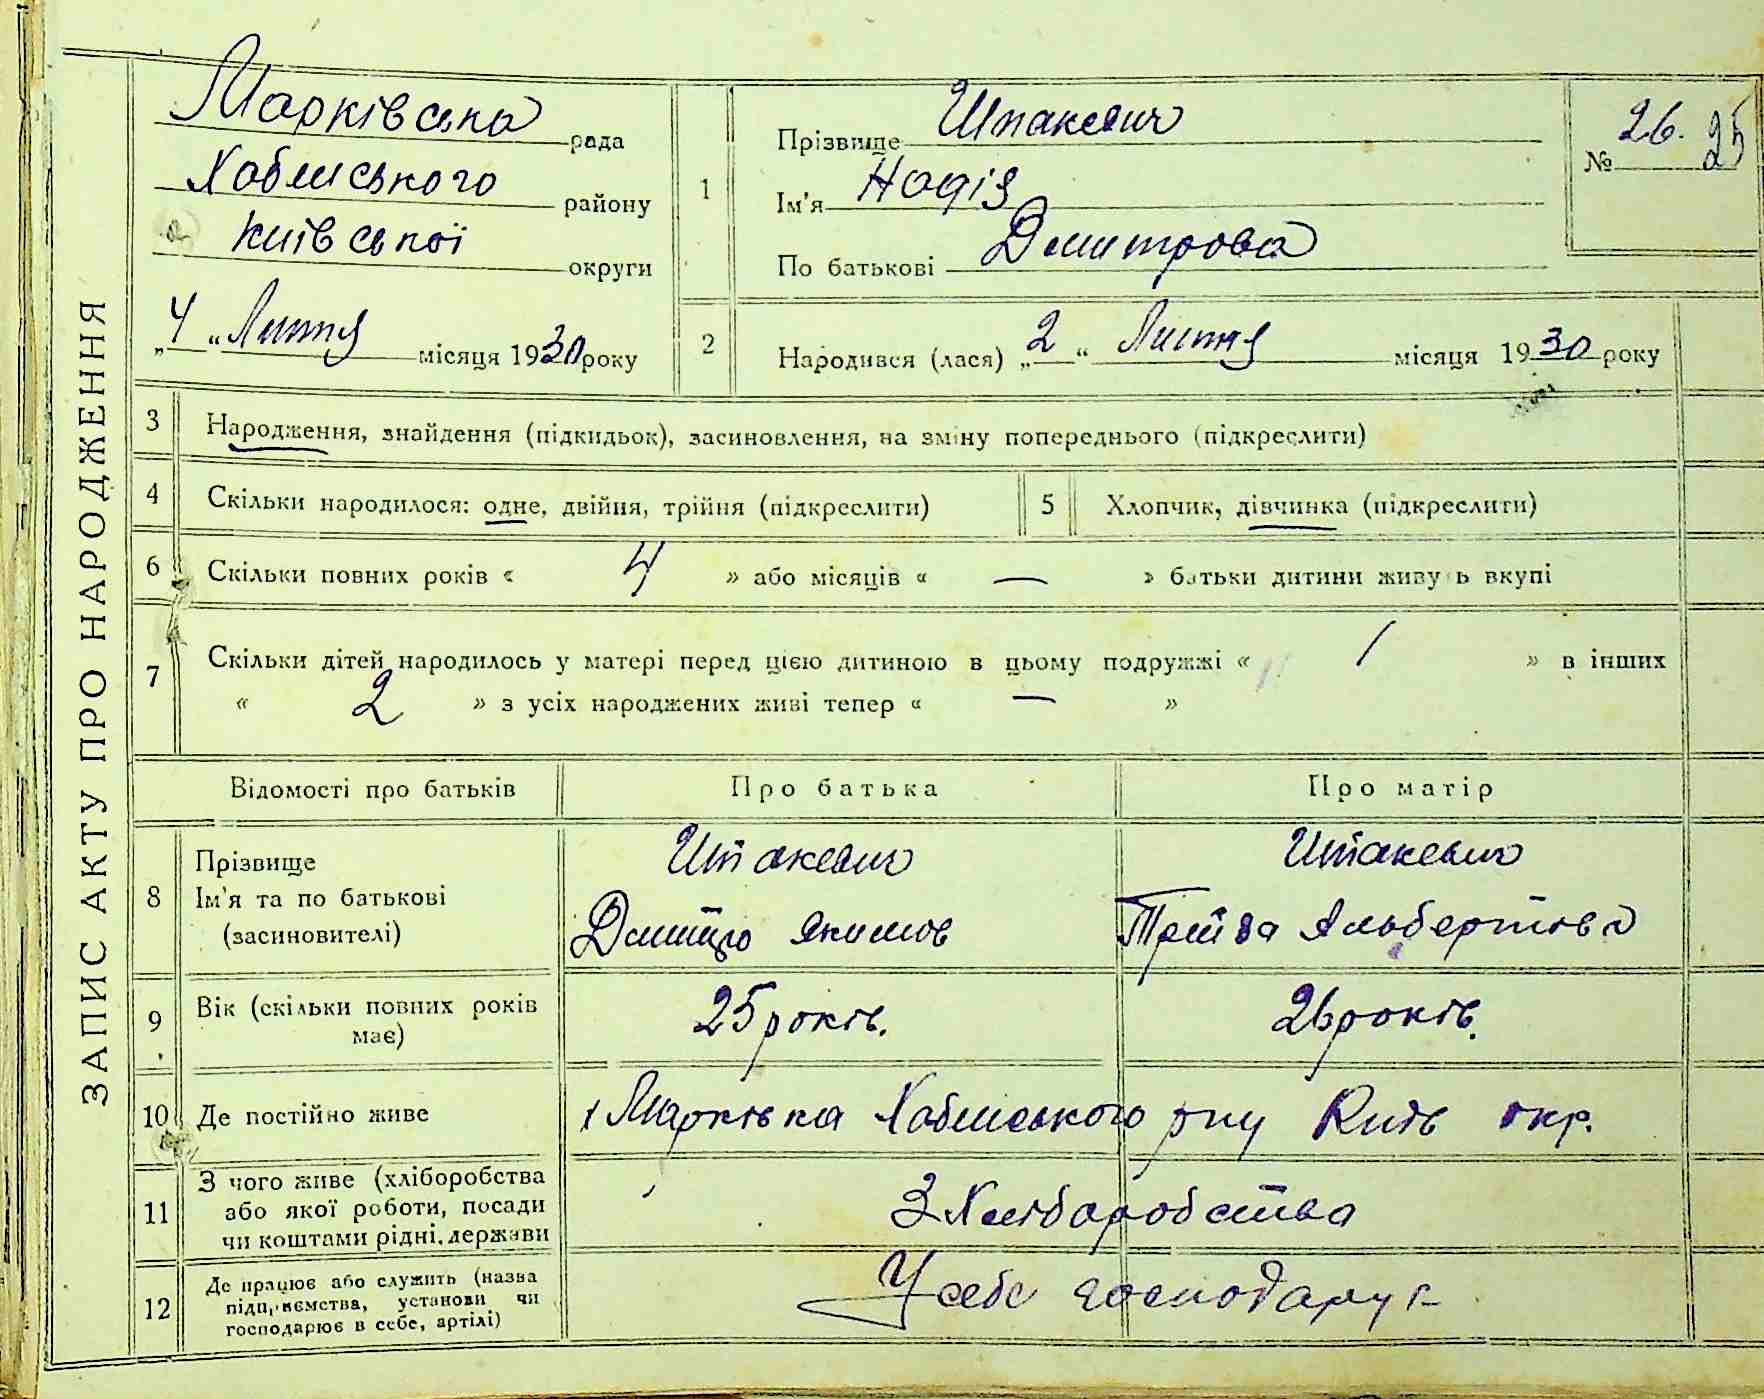 ЗАПИС АКТУ ПРО НАРОДЖЕННЯ
Марківська рада
Хабенського району
Київської округи
„4“ Лютня місяця 1930 року
1
Прізвище Шпакевич
Ім'я Надія
По батькові Дмитрова
№ 26. 25
2
Народився (лася) „2“ Лютня місяця 1930 року
3 Народження, знайдення (підкидьок), засиновлення, на зміну попереднього (підкреслити)
4 Скільки народилося: одне, двійня, трійня (підкреслити)
5 Хлопчик, дівчинка (підкреслити)
6 Скільки повних років « 4 » або місяців « — » батьки дитини живуть вкупі
7 Скільки дітей народилось у матері перед цією дитиною в цьому подружжі « 1 » в інших
« 2 » з усіх народжених живі тепер « — »
Відомості про батьків Про батька Про матір
8
Прізвище
Ім'я та по батькові
(засиновителі)
Шпакевич
Дмитро Якимов
Шпакевич
Альбертова
9
Вік (скільки повних років
має)
25 років.
26 років.
10 Де постійно живе
Марківка Хабенського р-ну Київ окр.
11
З чого живе (хліборобства
або якої роботи, посади
чи коштами рідні, держави
З Хліборобства
12
Де працює або служить (назва
підприємства, установи чи
господарює в себе, артілі)
У себе господарує